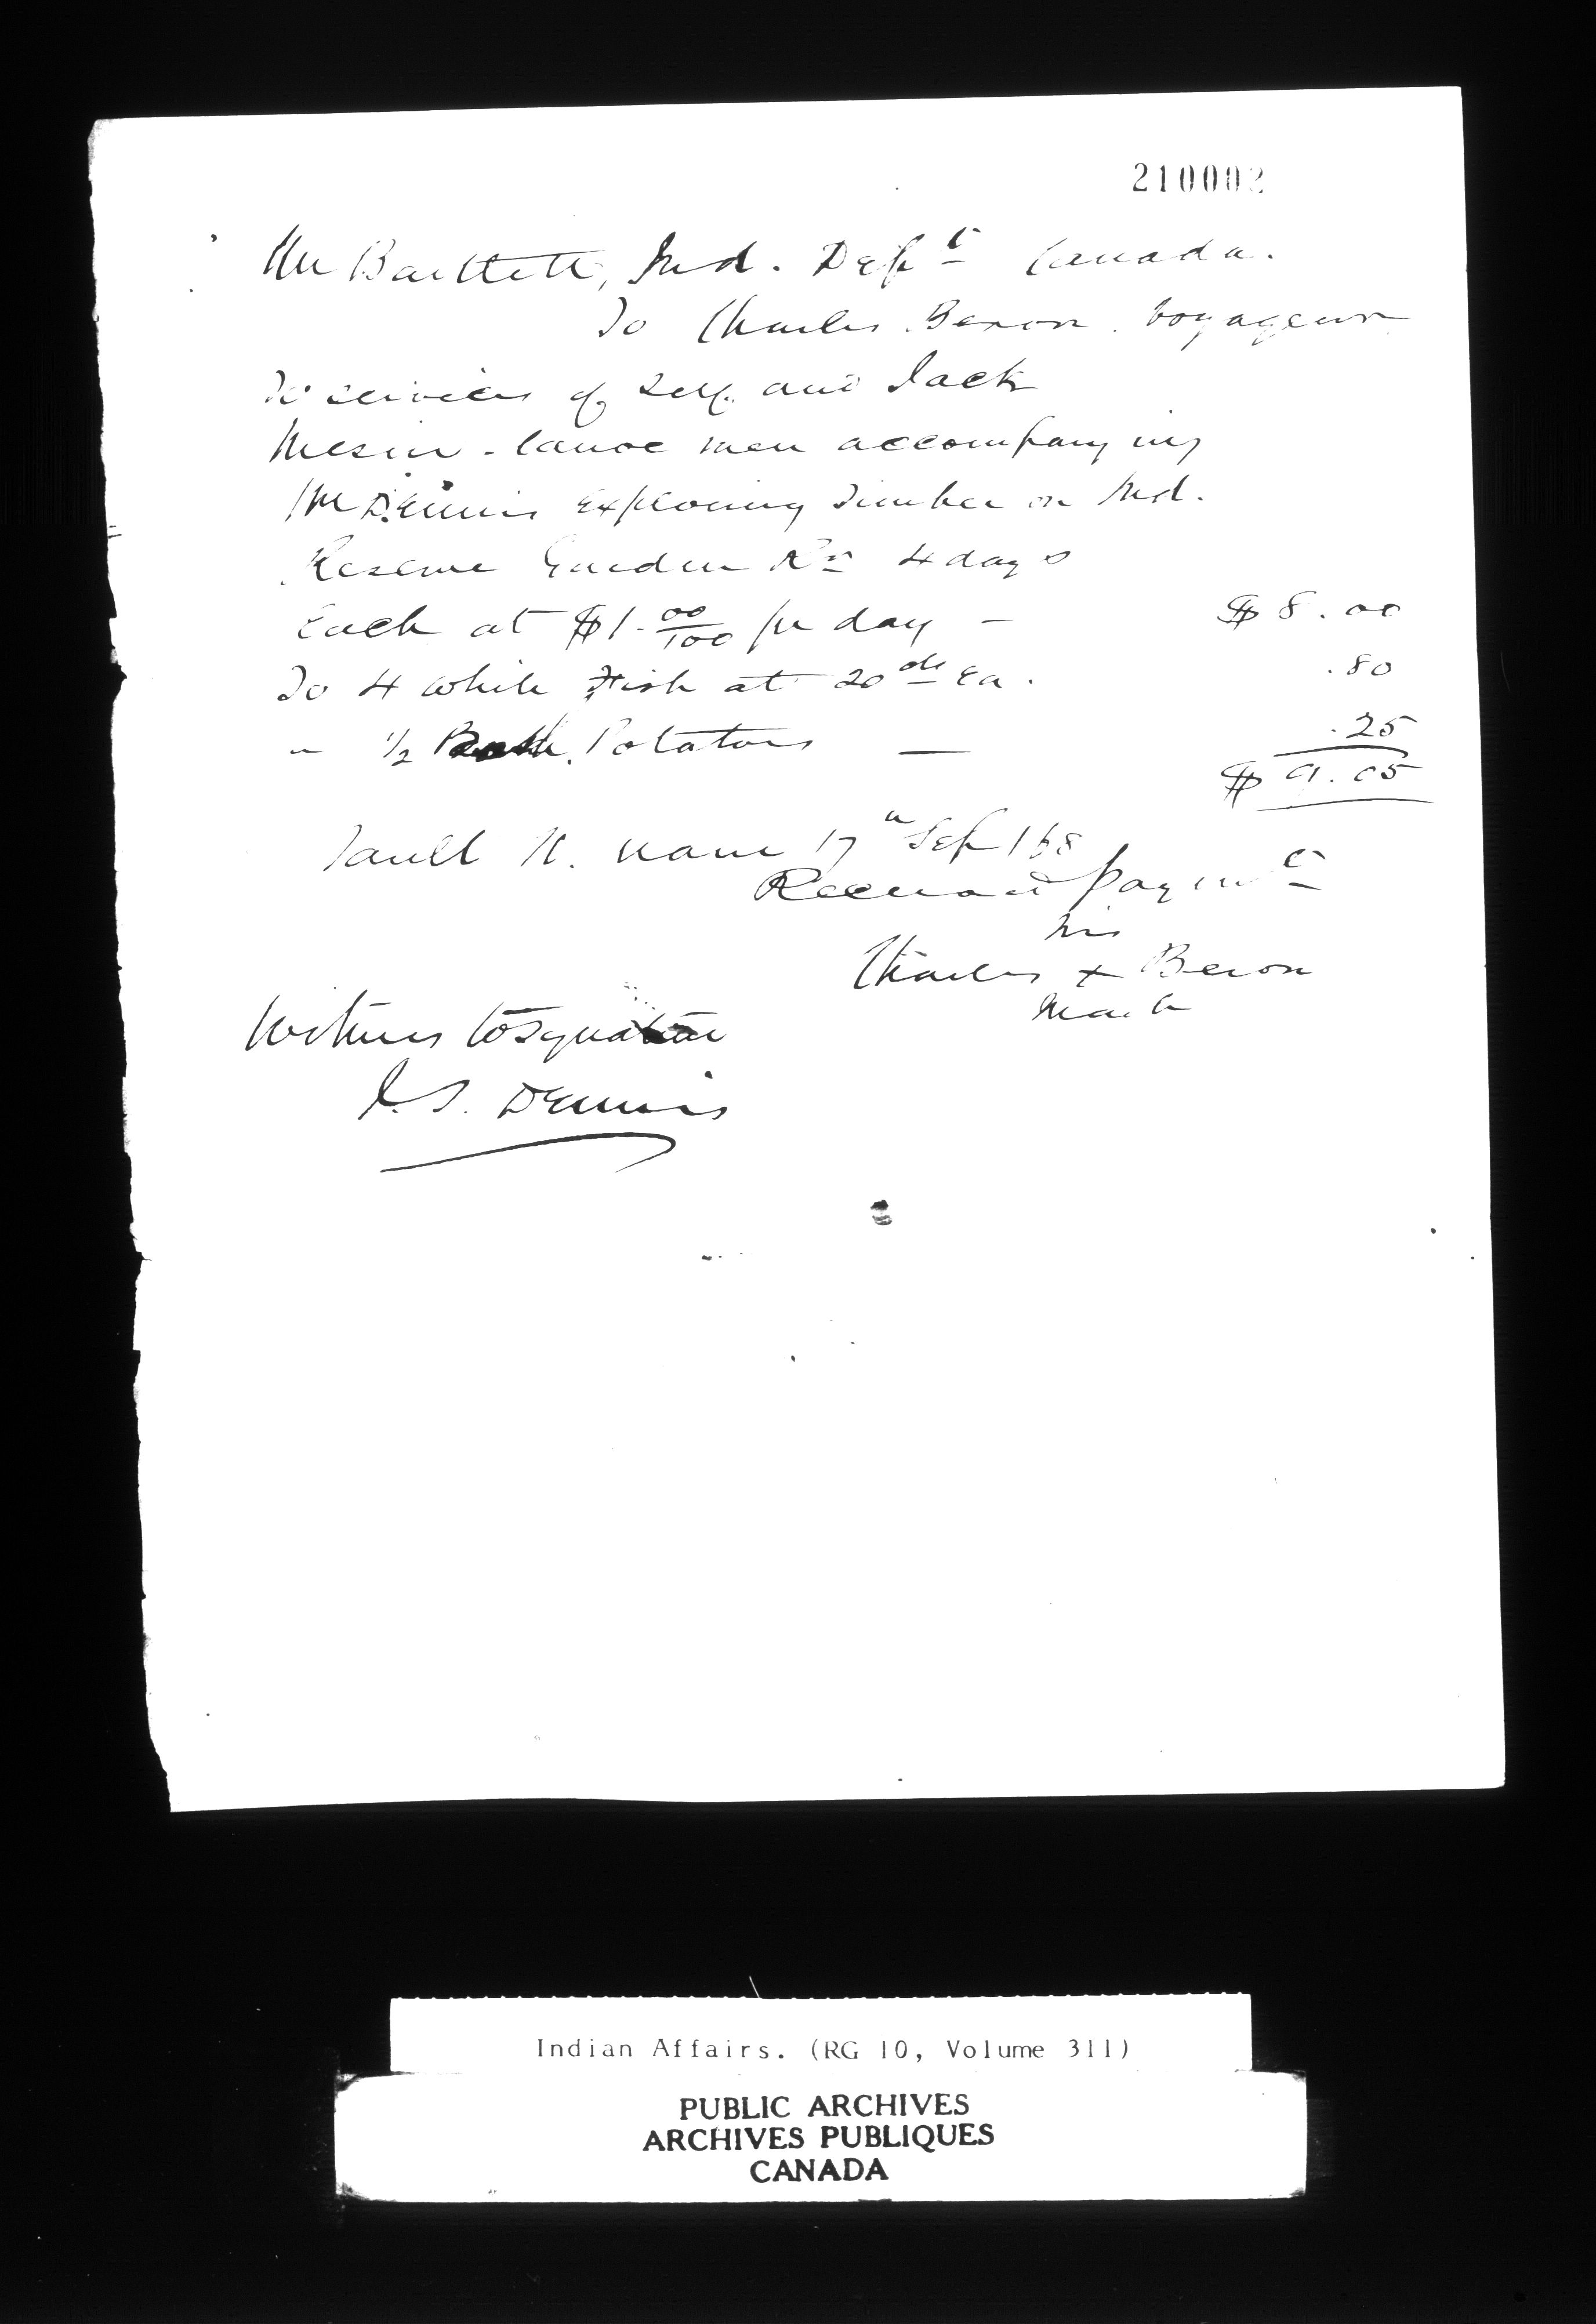 210002
Mr Bartlett, Ind. Dept Canada.
To Charles Beron. Voyageur
To services of Self and Jack
canoe men accompanying
Mr Dennis exploring Timber on Ind.
Reserve Garden Rr 4 days
each at $1.00/100 per day - $8.00
To 4 white Fish at 20 cts ea. .80
" 1/2 Bush. Potatoes — .25
$9.05
Sault St. Marie 17th Sep 168
Received paymt
his
Charles x Beron
Mark
Witness to signature
J.S. Dennis
Indian Affairs. (RG 10, Volume 311)
PUBLIC ARCHIVES
ARCHIVES PUBLIQUES
CANADA